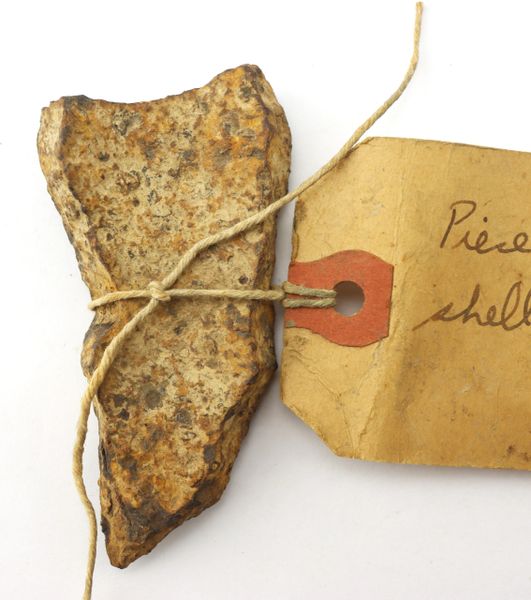 Piece
shell